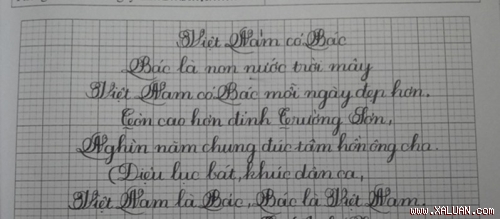 Việt Nam có Bác
Bác là non nước trời mây
Việt Nam có Bác mỗi ngày đẹp hơn.
Còn cao hơn đỉnh Trường Sơn,
Nghìn năm chung đúc tâm hồn ông cha.
(Điệu lục bát, khúc dân ca,
Việt Nam là Bác, Bác là Việt Nam.
www.XALUAN.com